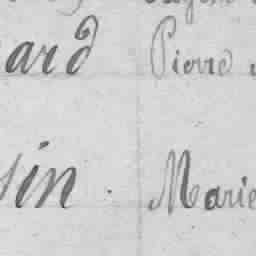 ard Pierre
sin. Marie